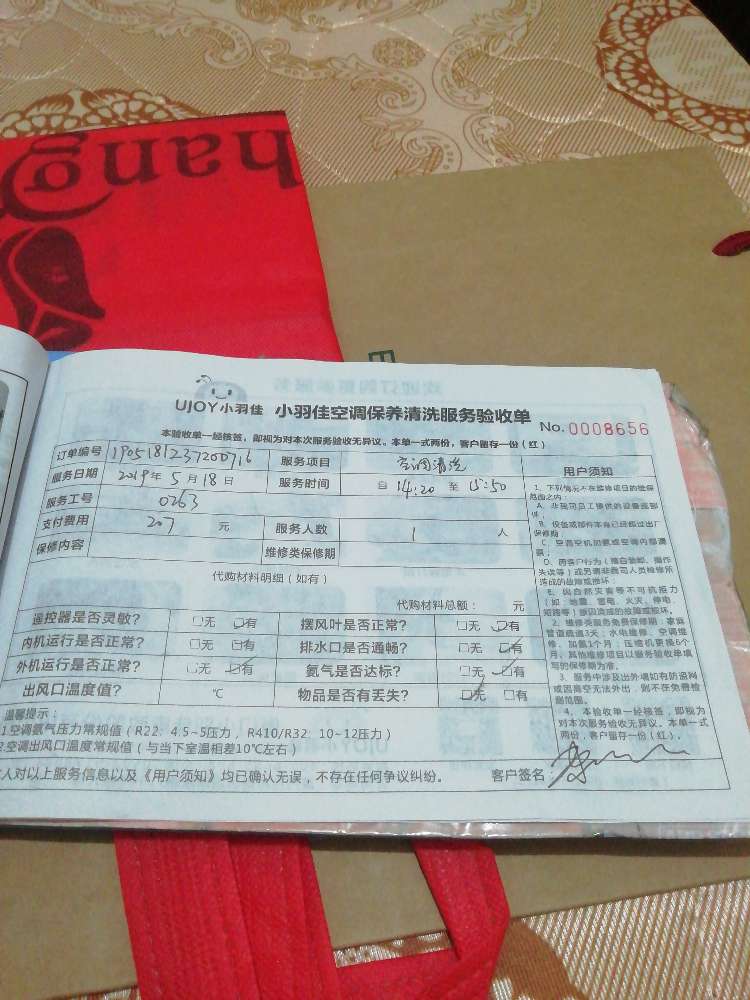 hang
UJOY小羽佳 小羽佳空调保养清洗服务验收单 No.0008656
本验收单一经核签，即视为对本次服务验收无异议。本单一式两份，客户留存一份（红）
订单编号 1905181237200716 服务项目 空调清洗
服务日期 2019年5月18日 服务时间 自 14:20 至 15:50
服务工号 0263
支付费用 207 元 服务人数 1 人
保修内容 维修类保修期
代购材料明细（如有）
代购材料总额： 元
遥控器是否灵敏？ □无 ☑有 摆风叶是否正常？ □无 ☑有
内机运行是否正常？ □无 ☑有 排水口是否通畅？ □无 ☑有
外机运行是否正常？ □无 ☑有 氨气是否达标？ □无 ☑有
出风口温度值？ ℃ 物品是否有丢失？ ☑无 □有
温馨提示：
1.空调氨气压力常规值（R22：4.5~5压力，R410/R32：10~12压力）
2.空调出风口温度常规值（与当下室温相差10℃左右）
人对以上服务信息以及《用户须知》均已确认无误，不存在任何争议纠纷。 客户签名：
用户须知
1、下列情况不在维修项目的维保
范围之内
A、非我司员工提供的设备或部
件；
B、设备或部件本身已经超过出厂
保修期；
C、空调空机加氨或空调内部漏
氨；
D、因客户行为（擅自装卸、操作
失误等）或另请非我司人员检修所
造成的故障或损坏；
E、因自然灾害等不可抗拒力
（如：地震、雷电、火灾、停电、
短路等）原因造成的故障或损坏。
2、维修类服务免费保修期：家庭
管道疏通3天；水电维修、空调维
修、加氨1个月；压缩机更换6个
月，其他维修项目以服务验收单填
写的保修期为准。
3、服务中涉及出外墙如有防盗网
或因高空无法外出，则不在免费检
测范围。
4、本验收单一经核签，即视为
对本次服务验收无异议。本单一式
两份，客户留存一份（红）。